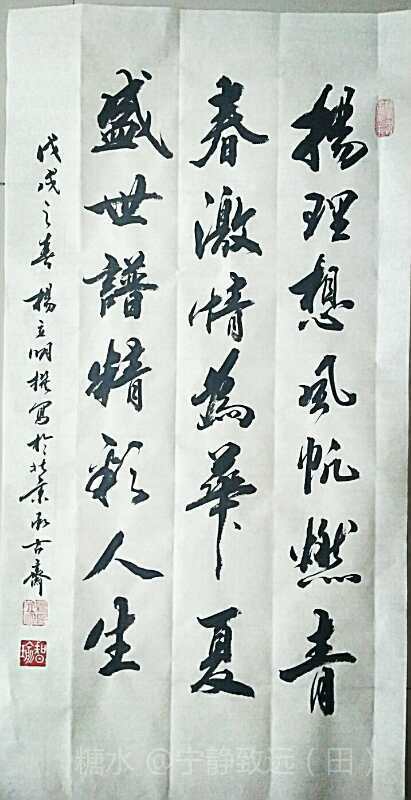 揚理想風帆燃青
春激情為華夏
盛世譜精彩人生
戊戌之春楊立明撰寫於北京承古齋
智瑜
糖水 @宁静致远（田）